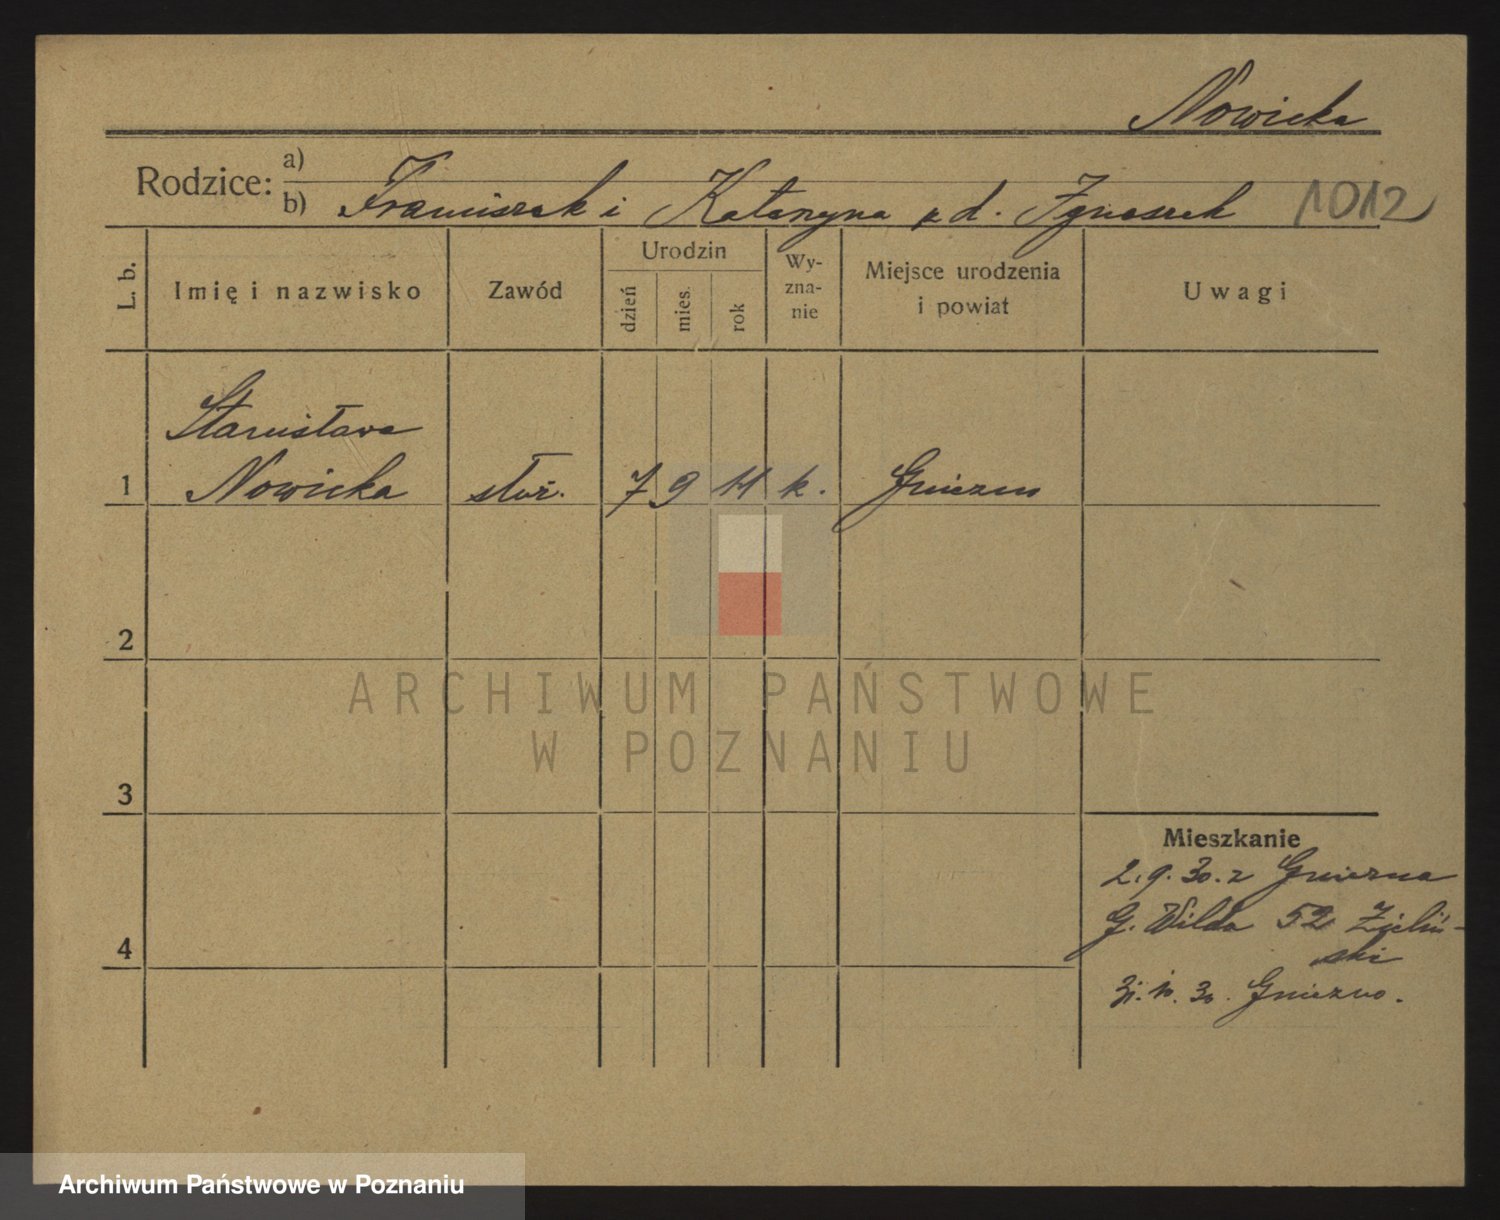 Nowicka
Rodzice: a)
b) Franciszek i Katarzyna z d. Ignaszek 1012
L. b. Imię i nazwisko Zawód Urodzin dzień mies. rok Wy-zna-nie Miejsce urodzenia i powiat Uwagi
Stanisława
1 Nowicka służ. 7 9 11 k. Gniezno
2
3
4
Mieszkanie
2.9.30. z Gniezna
G. Wilda 52 Zieliń-
ski
31.10.30. Gniezno.
ARCHIWUM PAŃSTWOWE
W POZNANIU
Archiwum Państwowe w Poznaniu